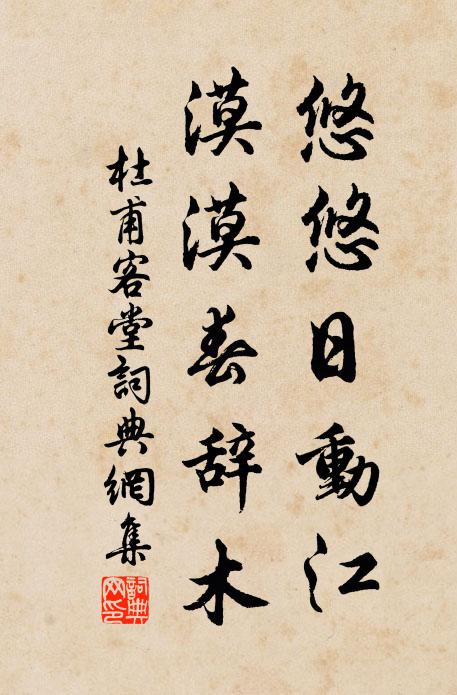 悠悠日動江
漠漠春辞木
杜甫客堂詞典網集
詞典網印